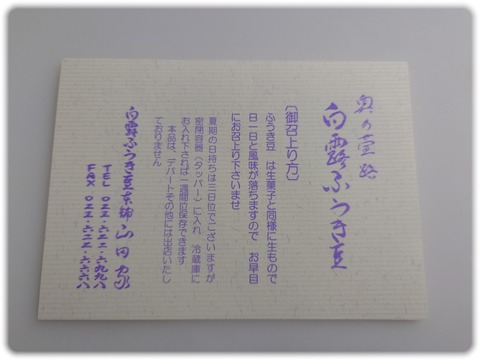 奥の壷路
白露ふうき豆
〔御召上り方〕
ふうき豆　は生菓子と同様に生もので
日一日と風味が落ちますので　お早目
にお召上り下さいませ
夏期の日持ちは三日位でございますが
密閉容器（タッパー）に入れ、冷蔵庫に
お入れ下されば一週間位保存できます
本品は、デパートその他には出店いたし
ておりません
白露ふうき豆本舗　山田家
TEL　〇二二・二二二・六九九八
FAX　〇二二・二二二・六六六八